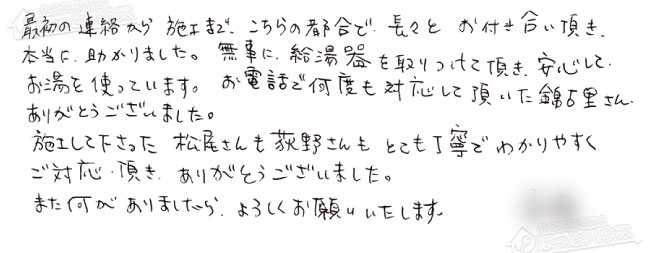 最初の連絡から施工まで、こちらの都合で、長々とお付き合い頂き、
本当に助かりました。無事に給湯器を取りつけて頂き、安心して
お湯を使っています。お電話で何度も対応して頂いた錦古里さん、
ありがとうございました。
施工して下さった松尾さんも荻野さんもとても丁寧でわかりやすく
ご対応頂き、ありがとうございました。
また何がありましたら、よろしくお願いいたします。